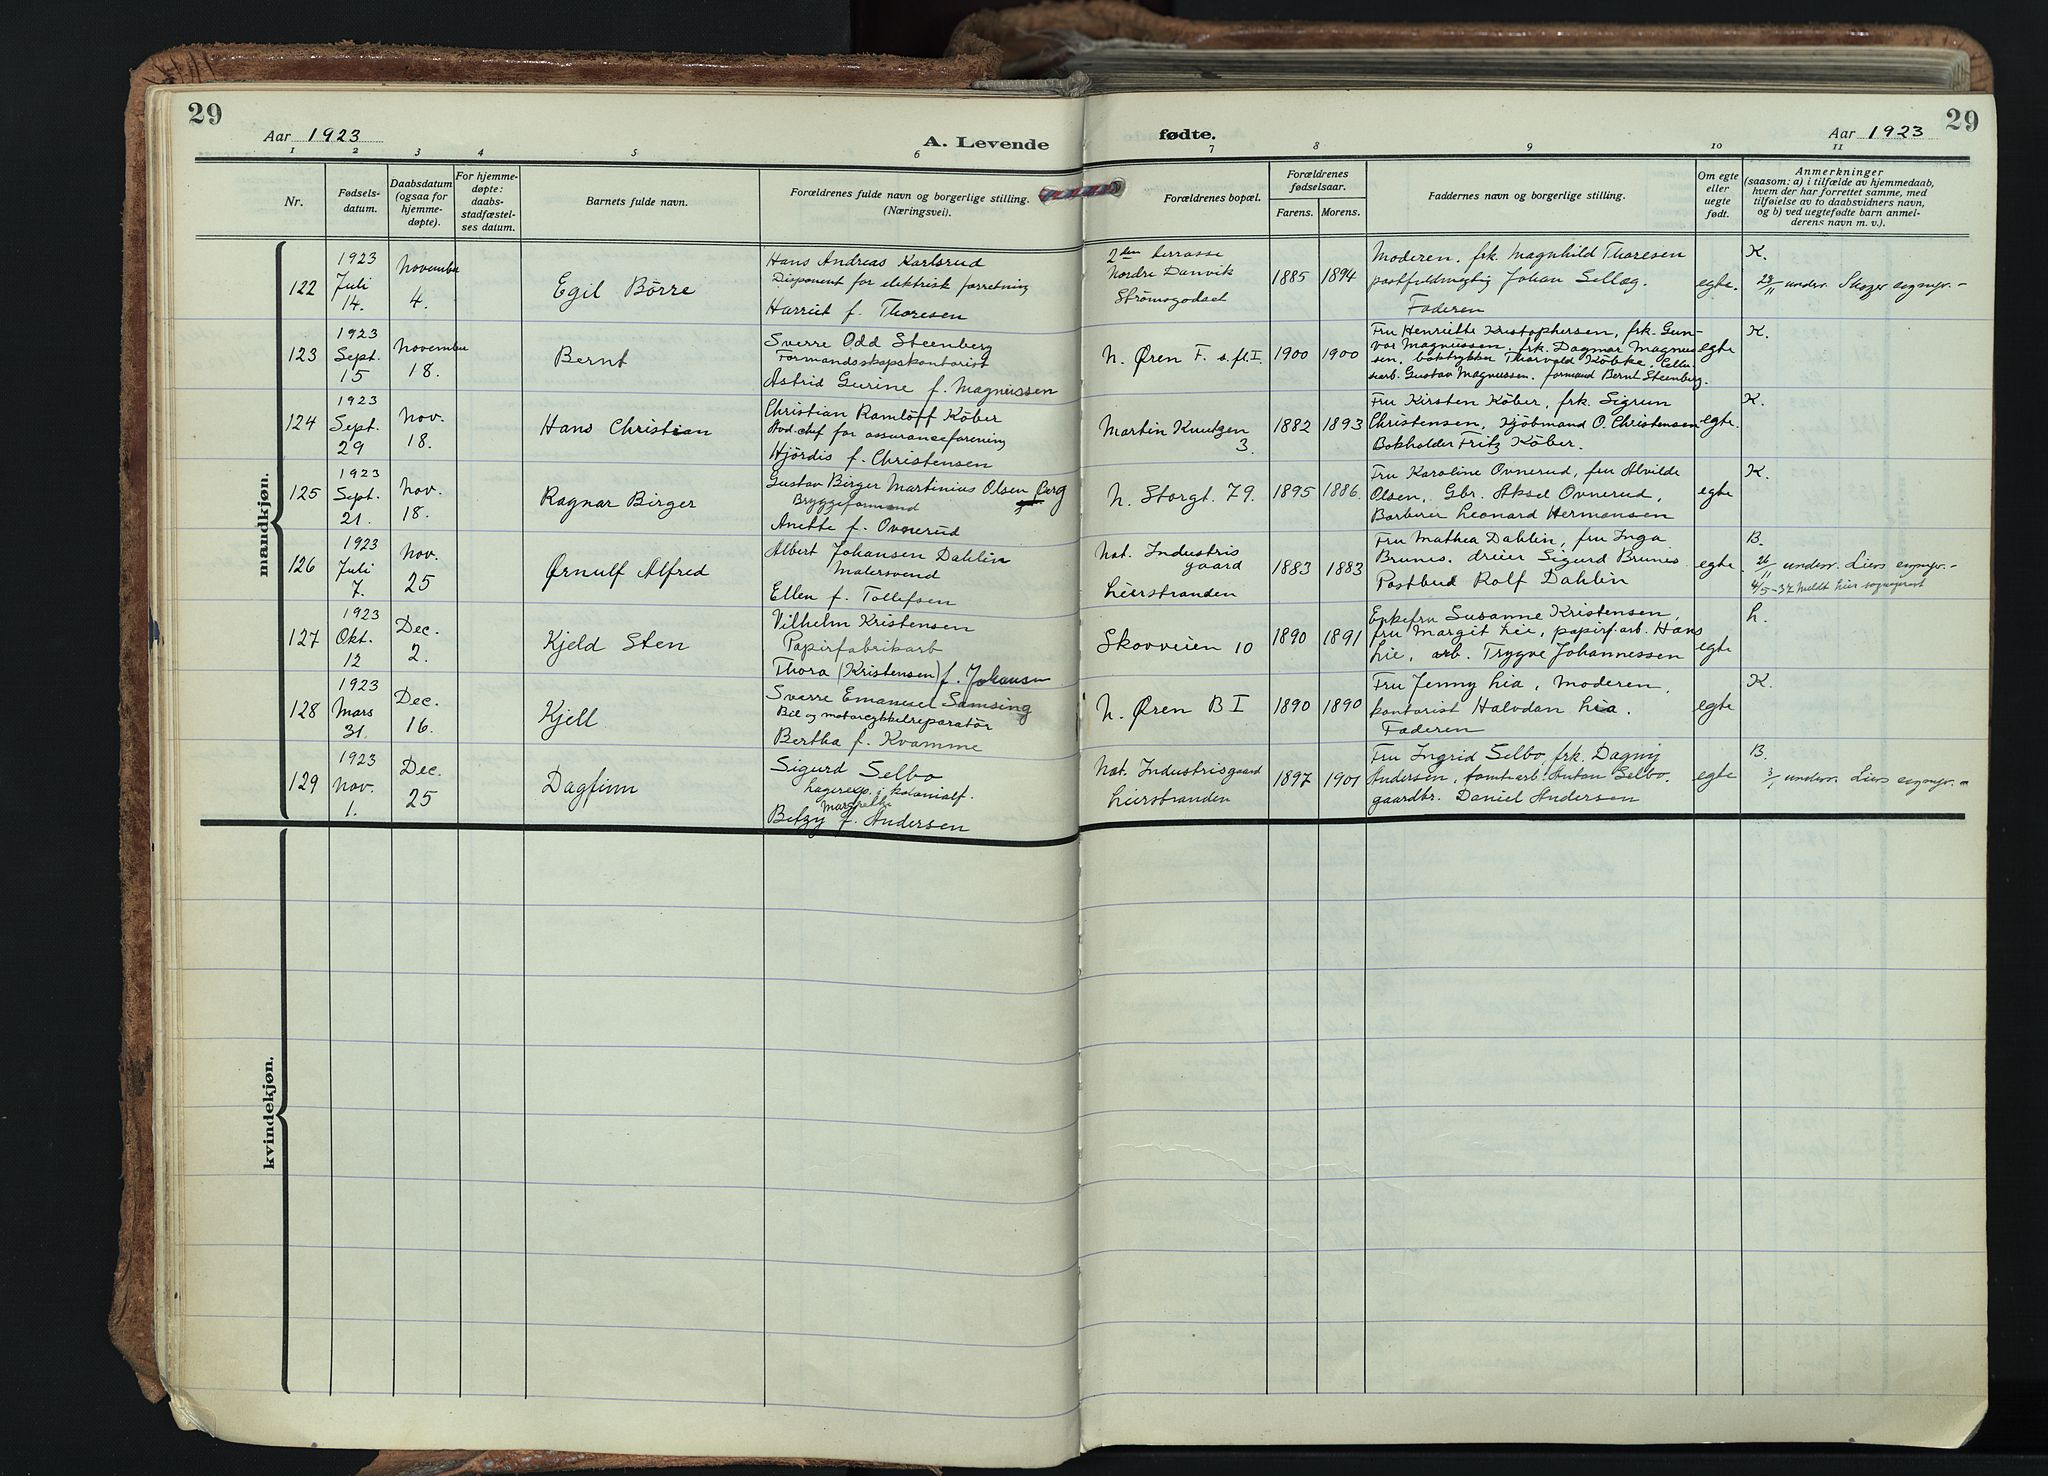 29
Aar 1923
A. Levende
fødte.
Aar 1923
29
1 2 3 4 5 6 7 8 9 10 11
Nr.
Fødsels-
datum.
Daabsdatum
(ogsaa for
hjemme-
døpte).
For hjemme-
døpte:
daabs-
stadfæstel-
ses datum.
Barnets fulde navn.
Forældrenes fulde navn og borgerlige stilling.
(Næringsvei).
Forældrenes bopæl.
Forældrenes
fødselsaar.
Farens. Morens.
Faddernes navn og borgerlige stilling.
Om egte
eller
uegte
født.
Anmerkninger
(saasom: a) i tilfælde av hjemmedaab,
hvem der har forrettet samme, med
tilføielse av to daabsvidners navn,
og b) ved uegtefødte barn anmel-
derens navn m. v.).
mandkjøn.
122
1923
Juli
14.
November
4.
Egil Börre
Hans Andreas Karlsrud
Disponent for elektrisk forretning
Harriet f. Thoresen
2den terrasse
Nordre Danvik
Strömsgodset
1885 1894
Moderen. frk Magnhild Thoresen
postfuldmægtig Johan Sellæg.
Faderen
egte.
K.
28/11 underr. Skoger sogнpr.-
123
1923
Sept.
15
November
18.
Bernt
Sverre Odd Steenberg
Formandsskapskontorist
Astrid Gurine f. Magnussen
N. Øren F. s. fl. I.
1900 1900
Fru Henriette Kristophersen, frk. Gun-
vor Magnussen, frk. Dagmar Magnus-
sen, boktrykker Thorvald Köbke, Cellu-
losearb. Gustav Magnussen, formand Bernt Steenberg.
egte
K.
124
1923
Sept.
29
Nov.
18.
Hans Christian
Christian Ramlöff Köber
for assuranceforening
Hjördis f. Christensen
Martin Knutzen
3.
1882 1893
Fru Kirsten Köber, frk. Sigrun
Christensen, Kjöbmand O. Christensen
Bokholder Fritz Köber.
egte.
K.
125
1923
Sept.
21.
Nov.
18.
Ragnar Birger
Gustav Birger Martinius Olsen Berg
Bryggeformand
Anette f. Ovnerud
N. Storgt. 79.
1895 1886.
Fru Karoline Ovnerud, fru Alvilde
Olsen, Gbr. Aksel Ovnerud,
Barberer Leonard Hermansen
egte
K.
126
1923
Juli
7.
Nov.
25
Ørnulf Alfred
Albert Johansen Dahlin
Malersvend
Ellen f. Tollefsen
Nat. Industris
gaard
Lierstranden
1883 1883
Fru Mathea Dahlin, fru Inga
Brunes. dreier Sigurd Brunes
Postbud Rolf Dahlin
egte.
B.
26/11 underr. Liers sognepr.-
4/5-37 Meldt Lier sogneprest
127
1923
Okt.
12
Dec.
2.
Kjeld Sten
Vilhelm Kristensen
Papirfabrikarb
Thora (Kristensen) f. Johansen
Skovveien 10
1890 1891
Enkefru Susanne Kristensen,
fru Margit Lie, papirf.arb. Hans
Lie, arb. Trygve Johannessen
egte
L.
128
1923
Mars
31.
Dec.
16.
Kjell
Sverre Emanuel Samsing
Bil og motorcykkelreparatör
Bertha f. Kvamme
N. Øren B I
1890 1890
Fru Jenny Lia, Moderen,
kontorist Halvdan Lia.
Faderen
egte
K.
129
1923
Nov.
1.
Dec.
25
Dagfinn
Sigurd Selbo
Lagerexp. i kolonialf.
Betzy f. Andersen
Nat. Industrisgaard
Lierstranden
1897 1901
Fru Ingrid Selbo, frk. Dagny
Andersen, tomtarb. Anton Selbo.
gaardbr. Daniel Andersen
egte
B.
3/1 underr. Liers sognepr.-
kvindekjøn.